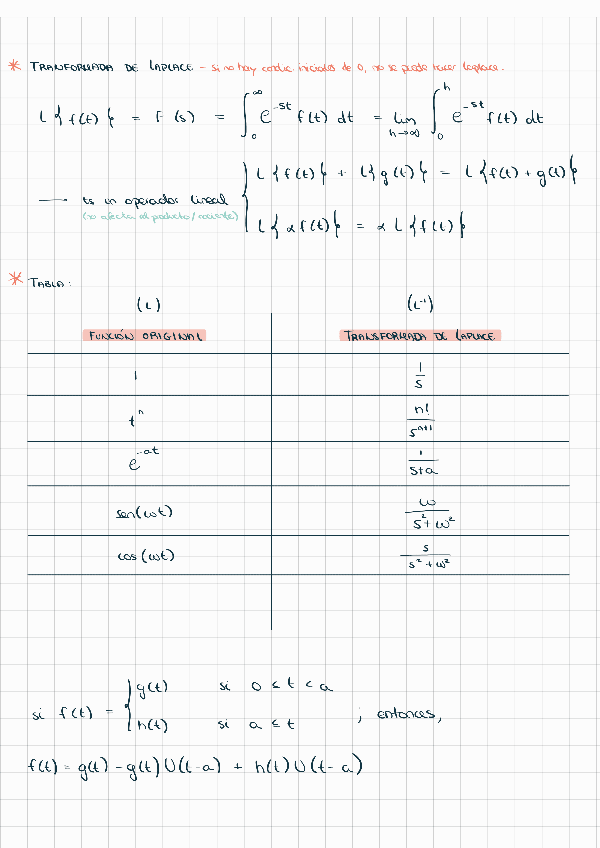 * TRANFORMADA DE LAPLACE – si no hay condic. iniciales de 0, no se puede hacer laplace.
L{f(t)} = F(s) = ∫₀^∞ e^(-st) f(t) dt = lim_(h→∞) ∫₀^h e^(-st) f(t) dt
L{f(t)} + L{g(t)} = L{f(t) + g(t)}
→ Es un operador lineal
(no afecta al producto/cociente)
L{αf(t)} = α L{f(t)}
* TABLA:
(L) (L⁻¹)
FUNCIÓN ORIGINAL TRANSFORMADA DE LAPLACE
1 1/s
tⁿ n!/sⁿ⁺¹
e^(-at) 1/(s+a)
sen(ωt) ω/(s²+ω²)
cos(ωt) s/(s²+ω²)
si f(t) = { g(t) si 0 ≤ t < a
h(t) si a ≤ t ; entonces,
f(t) = g(t) - g(t)U(t-a) + h(t)U(t-a)